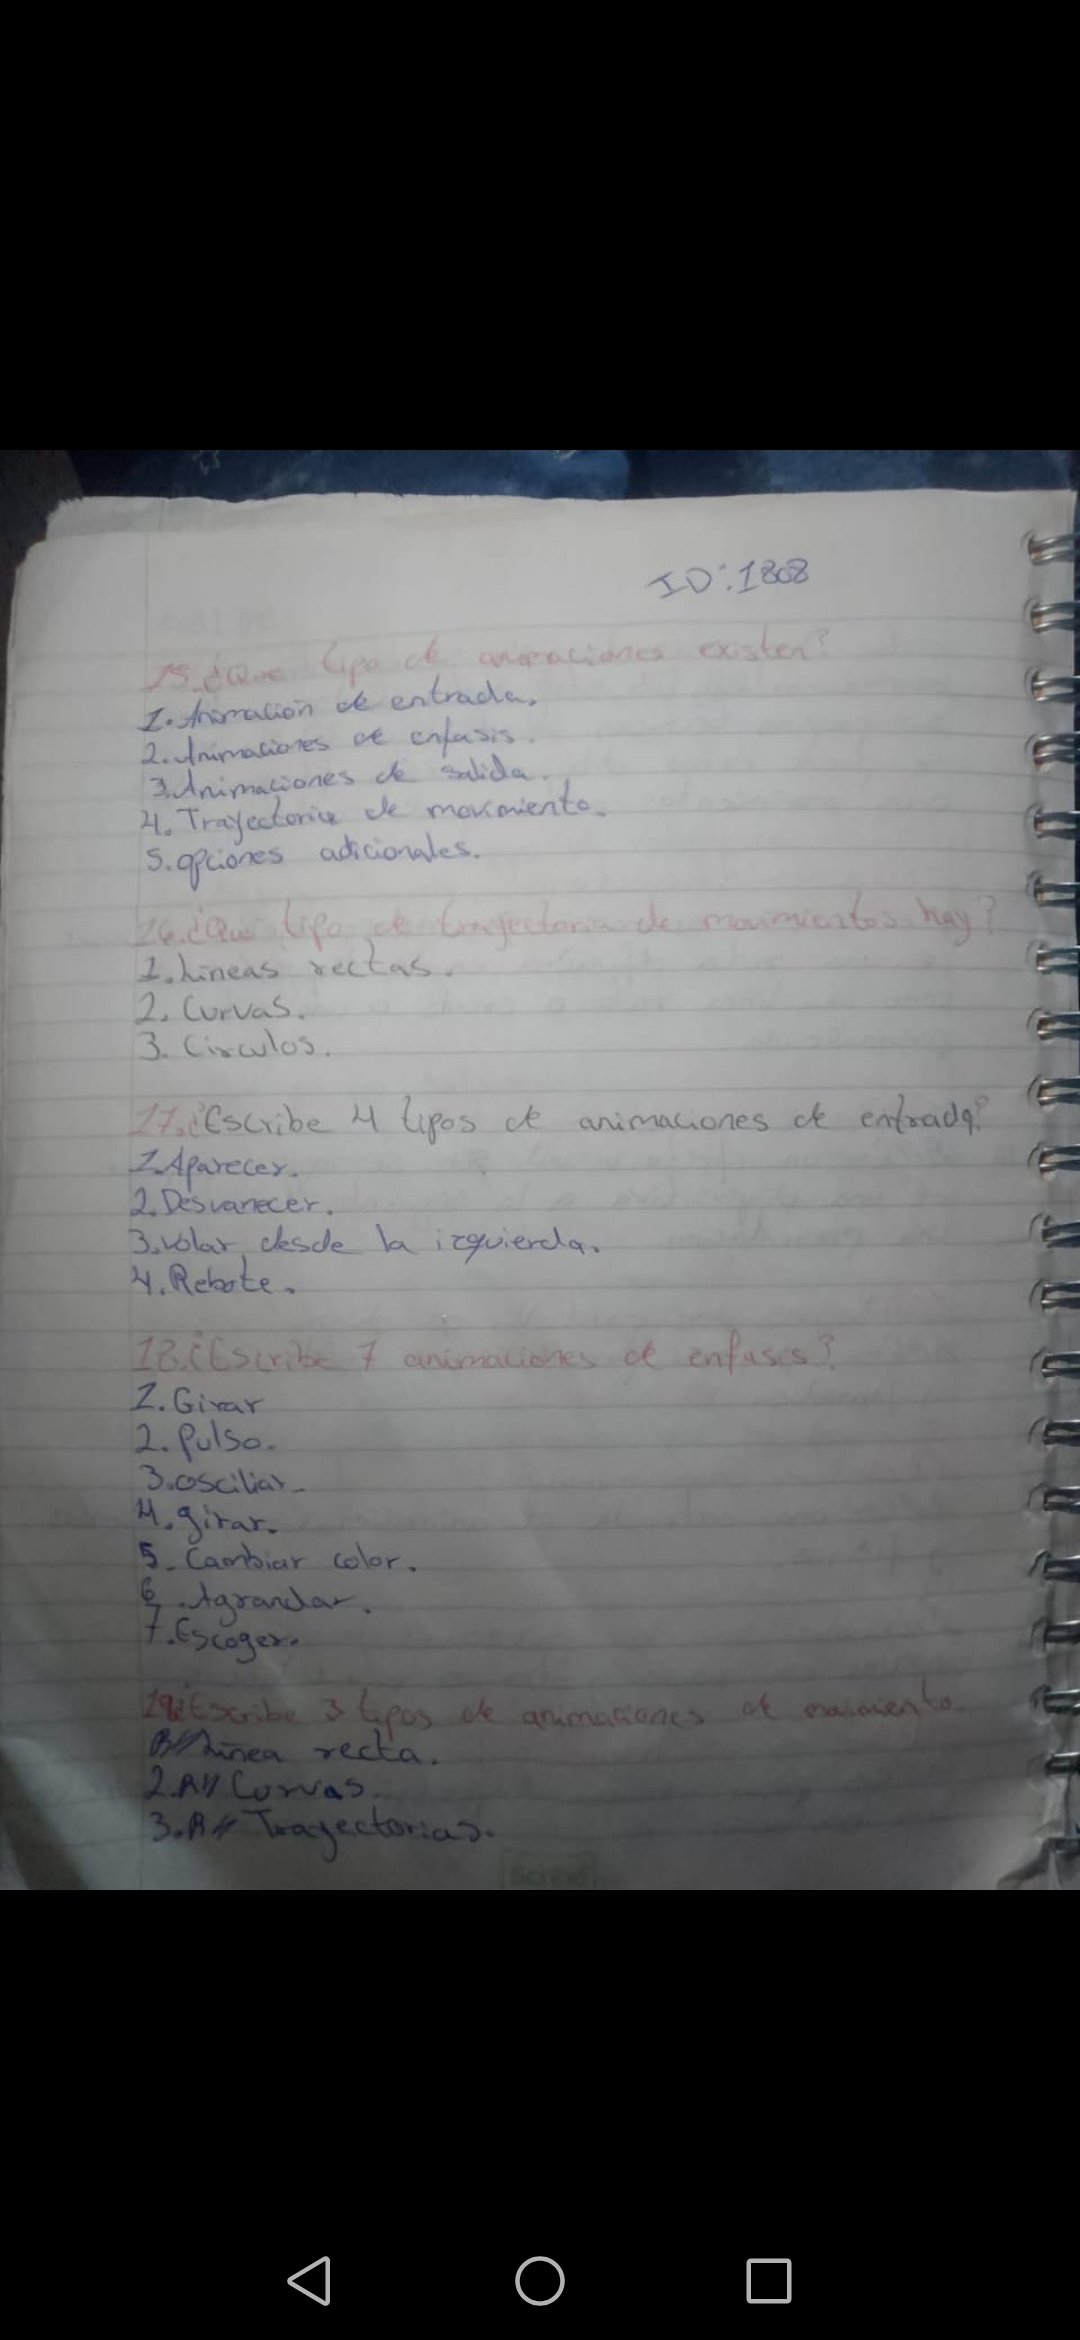 ID:1808
15.¿Que tipo de animaciones existen?
1.Animación de entrada.
2.Animaciones de enfasis.
3.Animaciones de salida.
4.Trayectoria de movimiento.
5.opciones adicionales.
16.¿Que tipo de trayectoria de movimientos hay?
1.Lineas rectas.
2.Curvas.
3.Circulos.
17.¿Escribe 4 tipos de animaciones de entrada?
1.Aparecer.
2.Desvanecer.
3.volar desde la izquierda.
4.Rebote.
18.¿Escribe 7 animaciones de enfases?
1.Girar
2.Pulso.
3.osciliar.
4.girar.
5.Cambiar color.
6.Agrandar.
7.Escoger.
19.¿Escribe 3 tipos de animaciones de movimiento.
R// Linea recta.
2.R// Curvas.
3.R// Trayectorias.
Scribe